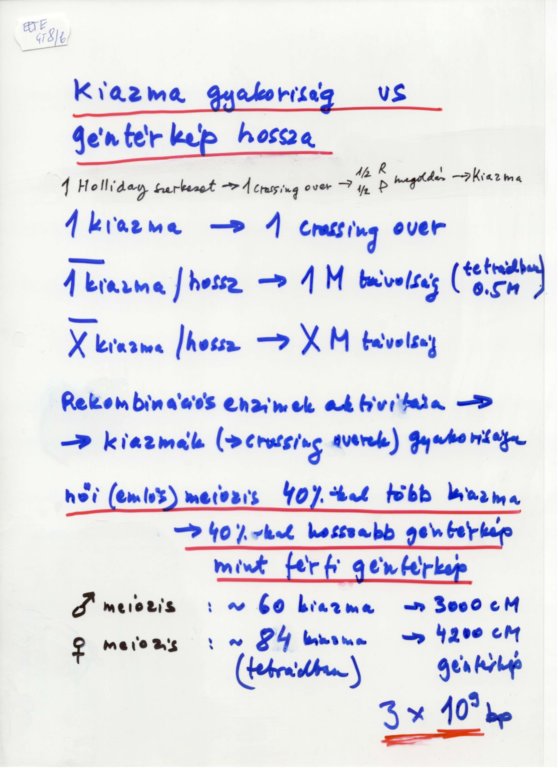 ELTE
GT8/6
Kiazma gyakoriság vs
géntérkép hossza
1 Holliday szerkezet → 1 crossing over → 1/2 R 1/2 P megoldás → Kiazma
1 kiazma → 1 crossing over
1̅ kiazma/hossz → 1 M távolság (tetrádban 0.5M)
X̅ kiazma/hossz → X M távolság
Rekombinációs enzimek aktivitása →
→ kiazmák (→ crossing overek) gyakorisága
női (emlős) meiózis 40%-kal több kiazma
→ 40%-kal hosszabb géntérkép
mint férfi géntérkép
♂ meiózis : ~ 60 kiazma → 3000 cM
♀ meiózis : ~ 84 kiazma → 4200 cM
(tetrádban) géntérkép
3 × 10⁹ bp